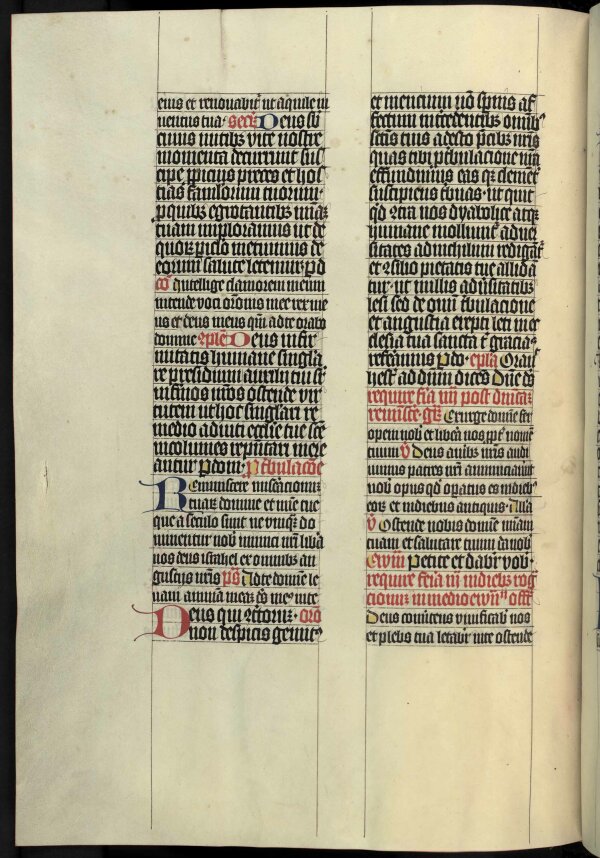 eius et renovabit ut aquile iu
ventus tua. secr Deus su
cuius nutibz vite nostre
momenta decurrunt sus
cipe ppicius preces et hos
tias famlorum tuorum.
p quibz egrotantibz miaz
tuam imploramus ut de
quorz piclo metuimus de
eorum salute letemur. p d
co Intellige clamorem meum
intende voci oronis mee rex me
us et deus meus qm ad te orabo
domine. ple Deus infir
mitatis humane singla
re presidium auxilii tui sr
infirmos nros ostende vir
tutem ut ope singlari re
medio adiuti ecclie tue sce
incolumes reputari mere
antur p dom. P tbulacoe
Reminiscere miseracionuz
tuaz domine et mie tue
que a seculo sunt ne unqz do
minentur nob inimici nri liba
nos deus israhel ex omnibz an
gustijs nris ps Ad te domine le
vavi animam meaz ds me in te
Deus qui contritorz. oro
non despicis gemitu
et merencium no spnis af
fectum intendentibz omibz
sctis tuis adesto pcibz nris
quas tibi p tbulacione nra
effundimus eas qz clemet
suscipiens tbuas. ut quit
qd contra nos dyabolice atqz
humane moliunt adver
sitates ad nichilum redigat
et consilio pietatis tue allida
tur. ut nullis adversitatibz
lesi sed de omi tbulacione
et angustia erepti leti in ec
clesia tua sancta tibi gracias
referamus p do. epla Oravi
hest ad dnm dices Dne ds
require feria iiij post dnicaz
reminisce. gr Exurge domine fer
opem nob et libera nos ppt nomen
tuum V Deus auribz nris audi
vimus patres nri annunciaverunt
nob opus qd opatus es in dieb
eorz et in diebus antiquis. Alla
V Ostende nobis domine miam
tuam et salutare tuum da nob
Ewm Petite et dabit vob.
require feria iij in diebz rog
cionuz in medio ewm offr
Deus convertens vivificabis nos
et plebs tua letabit in te ostende